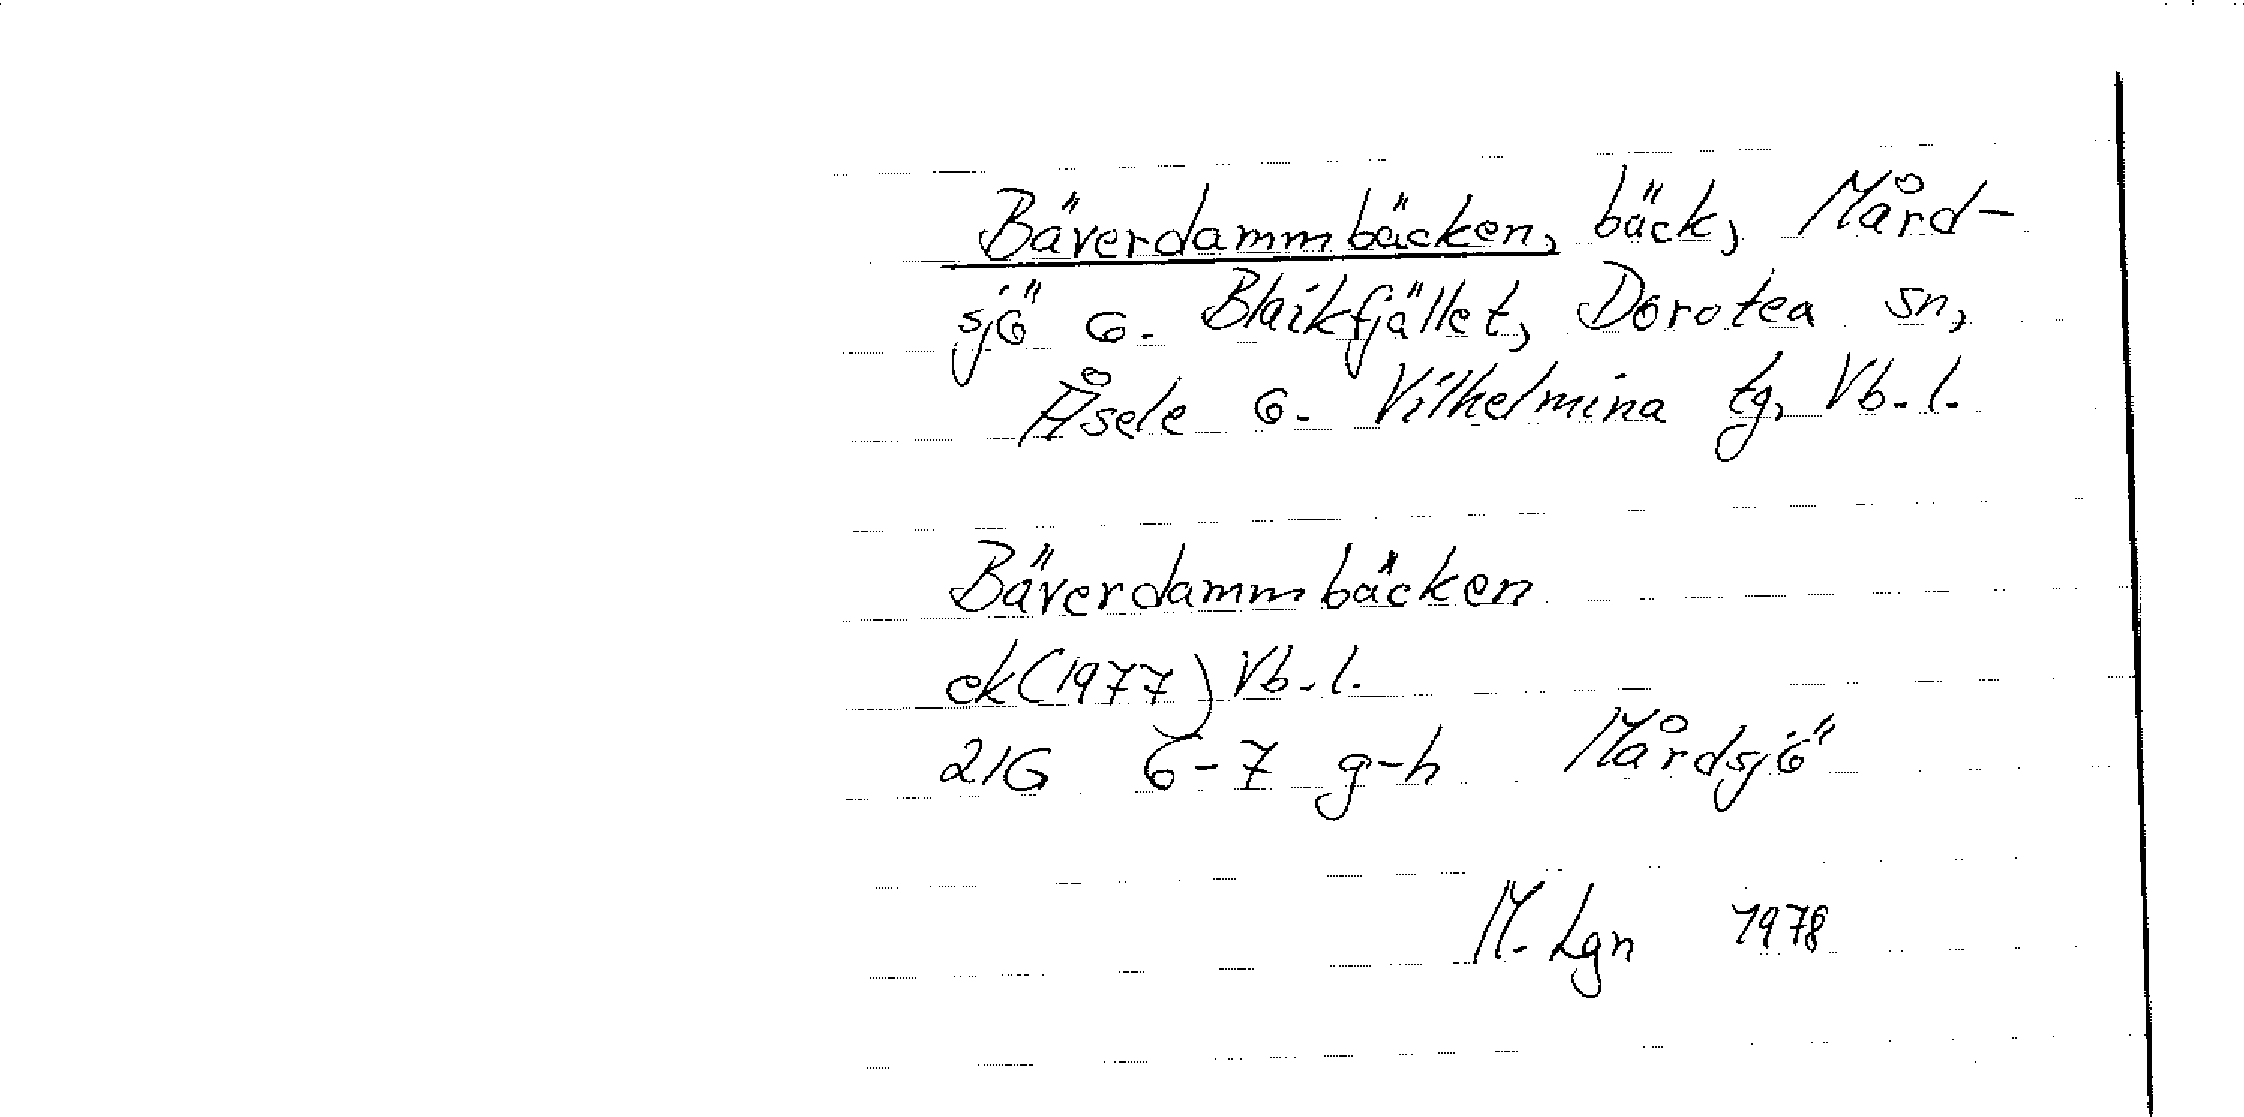 Bäverdammbäcken, bäck, Mård-
sjö o. Blaikfjället, Dorotea sn,
Åsele o. Vilhelmina tg, Vb. l.
Bäverdammbäcken
ek (1977) Vb. l.
21G 6-7 g-h Mårdsjö
M. Lgn 1978